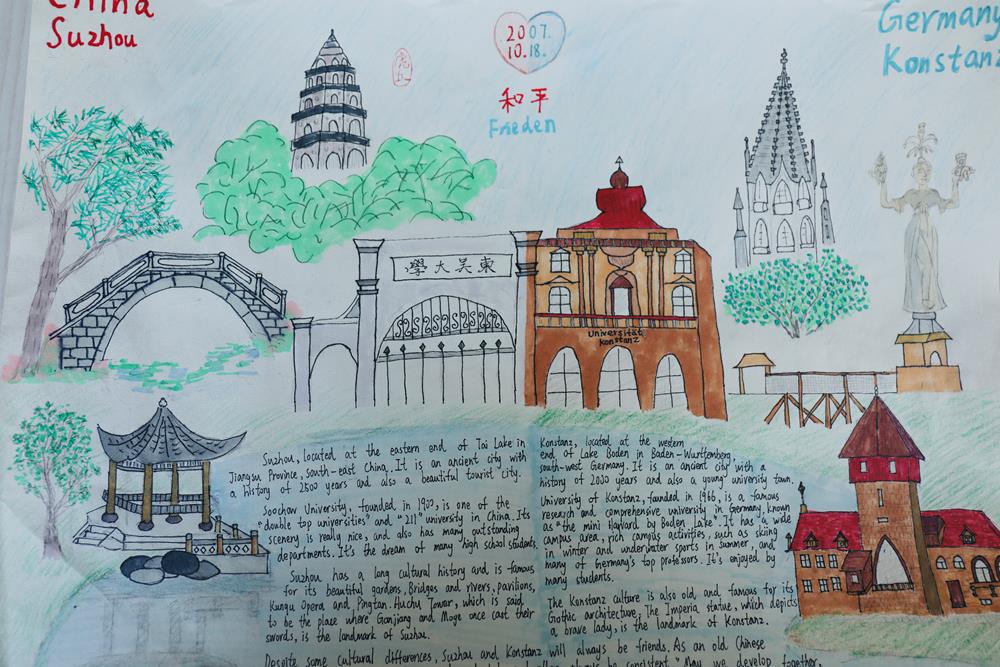 China
Suzhou
2007.
10.18.
和平
Frieden
虎丘
Germany
Konstanz
學大吴東
Universität
Konstanz
Suzhou, located at the eastern end of Tai Lake in
Jiangsu Province, south-east China. It is an ancient city with
a history of 2500 years and also a beautiful tourist city.
Soochow University, founded in 1900, is one of the
"double top universities" and "211" university in China. Its
scenery is really nice, and also has many outstanding
departments. It's the dream of many high school students.
Suzhou has a long cultural history and is famous
for its beautiful gardens, Bridges and rivers, pavilions,
Kunqu Opera and Pingtan. Huchu Tower, which is said
to be the place where Ganjiang and Moye once cast their
swords, is the landmark of Suzhou.
Konstanz, located at the western
end of Lake Boden in Baden-Wurttemberg,
south-west Germany. It is an ancient city with a
history of 2000 years and also a young university town.
University of Konstanz, founded in 1966, is a famous
research and comprehensive university in Germany, known
as "the mini Harvard by Boden Lake". It has a wide
campus area, rich campus activities, such as skiing
in winter and underwater sports in summer, and
many of Germany's top professors. It's enjoyed by
many students.
The Konstanz culture is also old and famous for its
Gothic architecture. The Imperia statue, which depicts
a brave lady, is the landmark of Konstanz.
Despite some cultural differences, Suzhou and Konstanz will always be friends. As an old Chinese
always be consistent." May we develop together